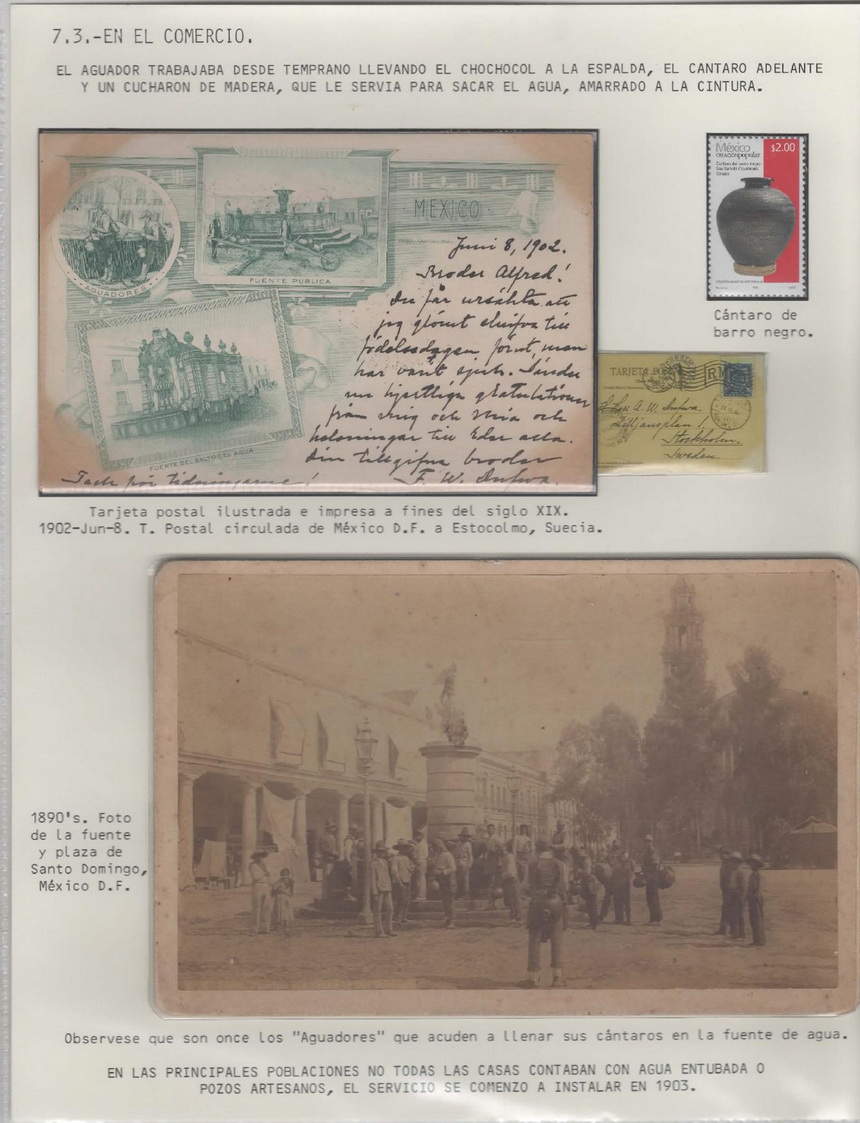 7.3.-EN EL COMERCIO.
EL AGUADOR TRABAJABA DESDE TEMPRANO LLEVANDO EL CHOCHOCOL A LA ESPALDA, EL CANTARO ADELANTE
Y UN CUCHARON DE MADERA, QUE LE SERVIA PARA SACAR EL AGUA, AMARRADO A LA CINTURA.
AGUADORES
FUENTE PUBLICA
MEXICO
Juni 8, 1902.
Broder Alfred!
Du får ursäkta att
jag glömt skrifva till
födelsedagen förut, men
har varit
hjertliga gratulationer
från mig och Mia och
helsningar till Eder alla.
Din tillgifne broder
F. W.
FUENTE DEL SALTO DEL AGUA
Tack för tidningarne!
México
creación popular
$2.00
Cántaro de
barro negro.
TARJETA
A. W.
Stockholm.
Sweden.
Tarjeta postal ilustrada e impresa a fines del siglo XIX.
1902-Jun-8. T. Postal circulada de México D.F. a Estocolmo, Suecia.
1890's. Foto
de la fuente
y plaza de
Santo Domingo,
México D.F.
Observese que son once los "Aguadores" que acuden a llenar sus cántaros en la fuente de agua.
EN LAS PRINCIPALES POBLACIONES NO TODAS LAS CASAS CONTABAN CON AGUA ENTUBADA O
POZOS ARTESANOS, EL SERVICIO SE COMENZO A INSTALAR EN 1903.